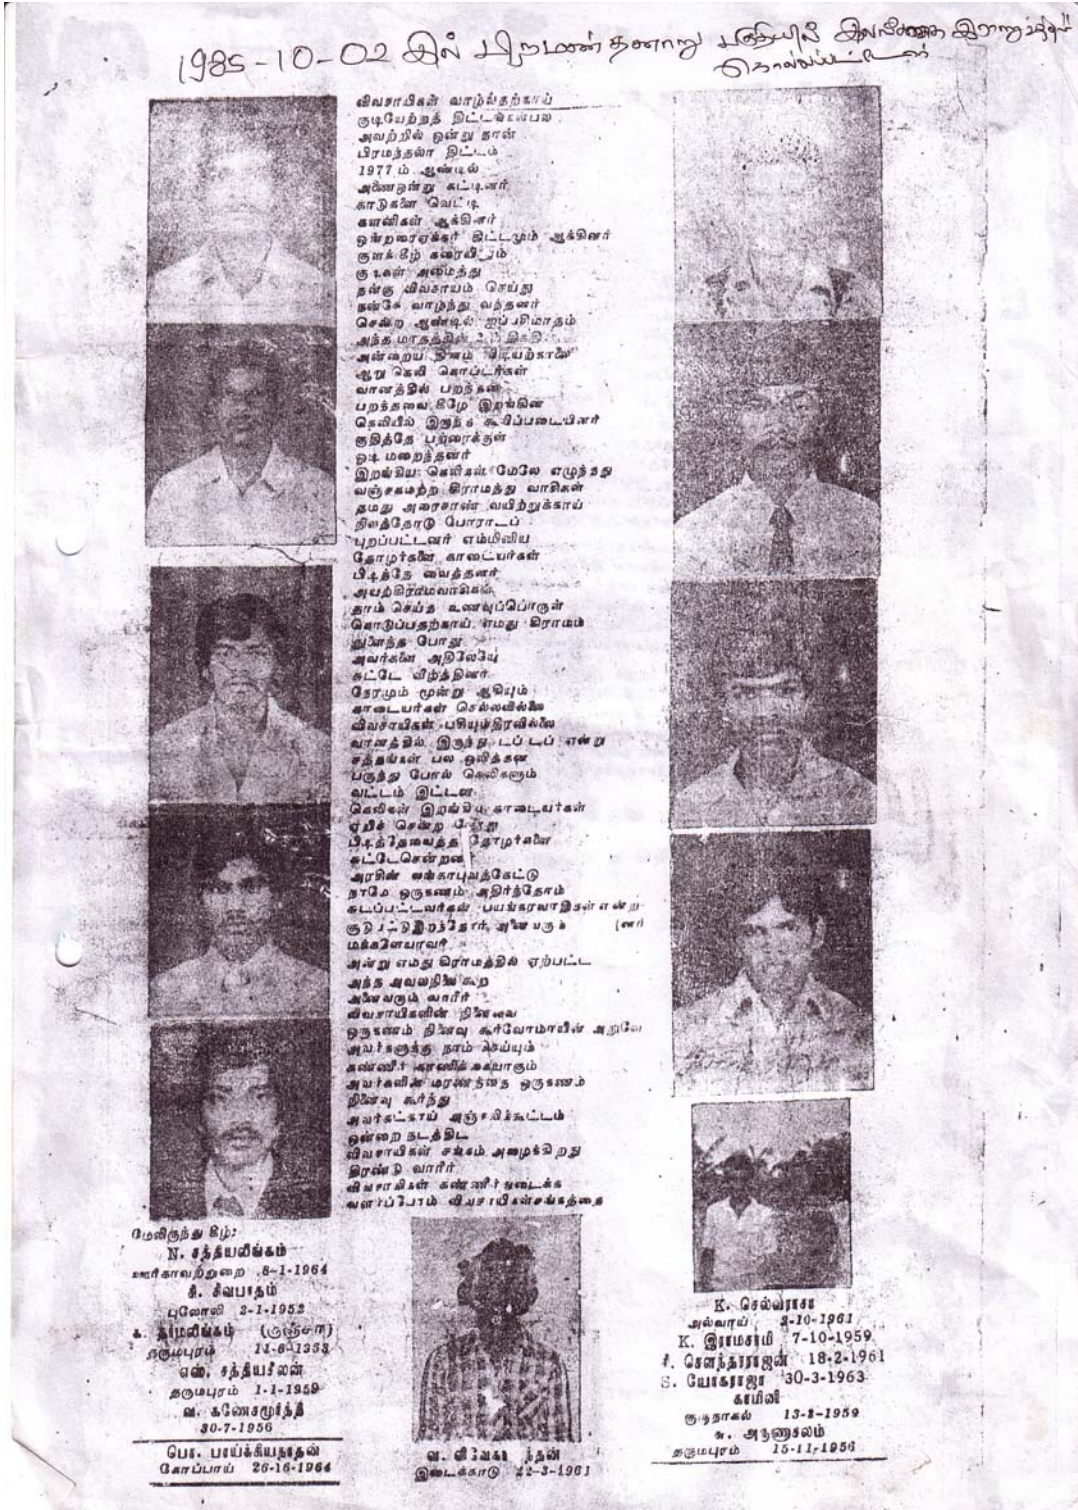 1985-10-02 இல் பிறமண்தனாறு பகுதியில் இராணுவத்தால்
கொல்லப்பட்டோர்
விவசாயிகள் வாழ்வதற்காய்
குடியேற்றத் திட்டங்கள்பல
அவற்றில் ஒன்று தான்
பிரமந்தலா திட்டம்
1977 ம் ஆண்டில்
அணைஒன்று கட்டினர்
காடுகளை வெட்டி
களனிகள் ஆக்கினர்
ஒன்றரைஏக்கர் திட்டமும் ஆக்கினர்
குளக் கீழ் கரையிலும்
குடிகள் அமைத்து
நன்கு விவசாயம் செய்து
நன்கே வாழ்ந்து வந்தனர்
சென்ற ஆண்டில் ஐப்பசிமாதம்
அந்த மாதத்தின்
அன்றைய தினம் விடியற்காலை
ஆறு கெலி கொப்டர்கள்
வானத்தில் பறந்தன
பறந்தவை கீழே இறங்கின
கெலியில் இருந்த கூலிப்படையினர்
குதித்தே பற்றைக்குள்
ஓடி மறைந்தனர்
இறங்கிய கெலிகள் மேலே எழுந்தது
வஞ்சகமற்ற கிராமத்து வாசிகள்
தமது அரைசாண் வயிற்றுக்காய்
நிலத்தோடு போராடப்
புறப்பட்டனர் எம்மினிய
தோழர்களை காடையர்கள்
பிடித்தே வைத்தனர்
அயற்கிராமவாசிகள்
தாம் செய்த உணவுப்பொருள்
கொடுப்பதற்காய் எமது கிராமம்
நுழைந்த போது
அவர்களை அதிலேயே
சுட்டே வீழ்த்தினர்
நேரமும் மூன்று ஆகியும்
காடையர்கள் செல்லவில்லை
விவசாயிகள் பசியும்தீரவில்லை
வானத்தில் இருந்து டப் டப் என்று
சத்தங்கள் பல ஒலித்தன
பருந்து போல் கெலிகளும்
வட்டம் இட்டன
கெலிகள் இறங்கிய காடையர்கள்
ஏறிச் சென்ற போது
பிடித்தேவைத்த தோழர்களை
சுட்டேசென்றனர்
அரசின் லங்காபுவத்கேட்டு
நாமே ஒருகணம் அதிர்ந்தோம்
சுடப்பட்டவர்கள் பயங்கரவாதிகள் என்ற
குடுபட்டுஇறந்தோர் அனைவரும் (னர்
மக்களேயாவர்
அன்று எமது கிராமத்தில் ஏற்பட்ட
அந்த அவலநிலை கூற
அனைவரும் வாரீர்
விவசாயிகளின் நினைவை
ஒருகணம் நினைவு கூர்வோமாயின் அதுவே
அவர்களுக்கு நாம் செய்யும்
கண்ணீர் காணிக்கையாகும்
அவர்களின் மரணத்தை ஒருகணம்
நினைவு கூர்ந்து
அவர்கட்காய் அஞ்சலிக்கூட்டம்
ஒன்றை நடத்திட
விவசாயிகள் சங்கம் அழைக்கிறது
திரண்டு வாரீர்
விவசாயிகள் கண்ணீர் துடைக்க
வளர்ப்போம் விவசாயிகள்சங்கத்தை
மேலிருந்து கீழ்:
N. சத்தியலிங்கம்
ஊர்காவற்றுறை 8-1-1964
சி. சிவபாதம்
புலோலி 2-1-1952
க. தர்மலிங்கம் (குஞ்சா)
தருமபுரம்
எஸ். சத்தியசீலன்
தருமபுரம் 1-1-1959
வ. கணேசமூர்த்தி
30-7-1956
பொ. பாய்க்கியநாதன்
கோப்பாய் 26-16-1964
வ. விவேகானந்தன்
இடைக்காடு 22-3-1961
K. செல்வராசா
அல்வாய் 2-10-1961
K. இராமசாமி 7-10-1959
சி. சௌந்தரராஜன் 18-2-1961
S. யோகராஜா 30-3-1963
காமினி
குடிநாகல் 13-8-1959
சு. அருணாசலம்
தருமபுரம் 15-11-1956